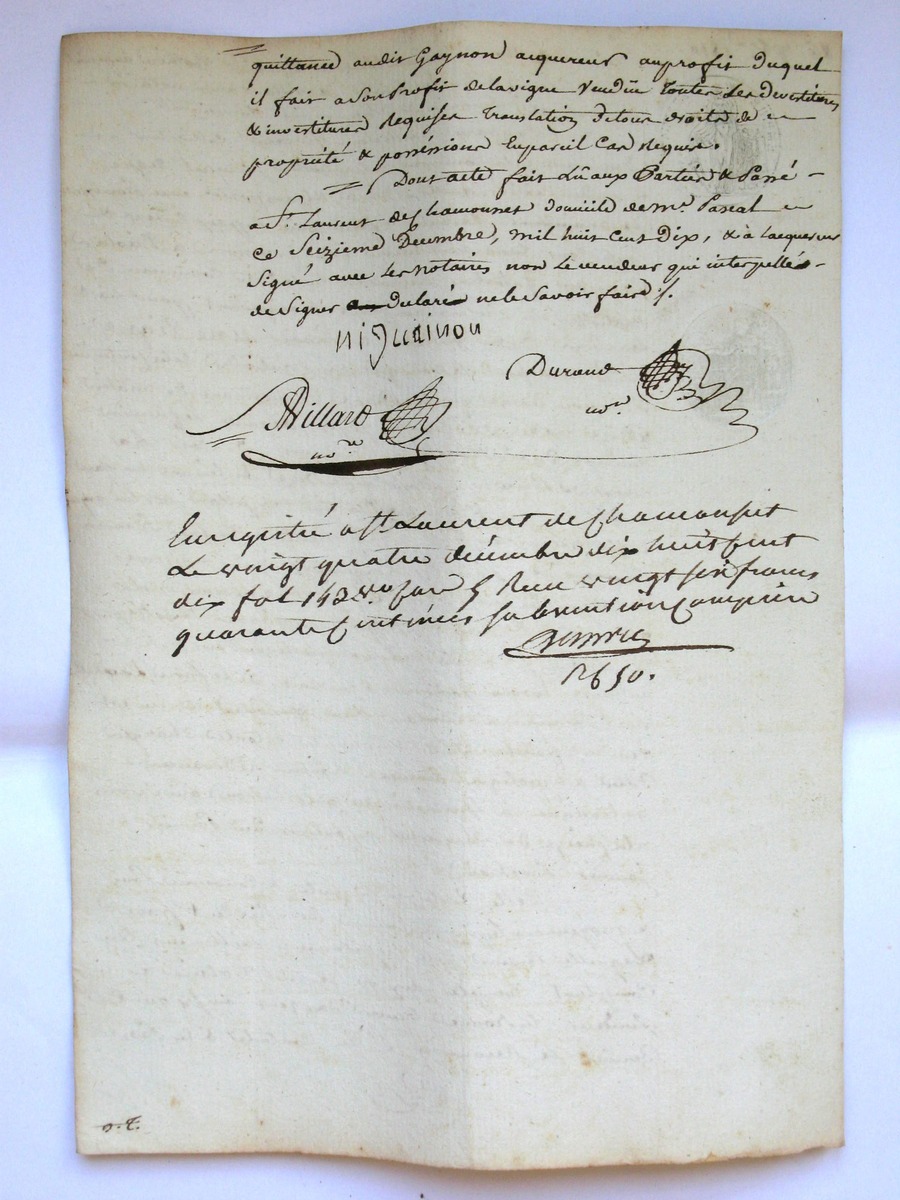 quittance audit Gaynon acquereur au profit duquel
il fait a son Profit de la vigne Vendüe toutes les devestitures
& investitures Requises translation de tous droits de
propriété & possession en pareil cas Requis.
Dont acte fait Lû aux Parties & Passé
a St. Laurent de Chamousset domicile de Mr. Pascal
ce Seizieme Decembre, mil huit cent Dix, & a lacquereur
Signé avec les notaires non le vendeur qui interpellé
de Signer declaré ne le Savoir faire ./.
Durand
nore
Villard
nore
Enregistré a St. Laurent de Chamousset
Le vingt quatre décembre dix huit cent
dix fol 143 vo Case 5 Recu vingt six francs
quarante centimes subvention comprise
D. T.